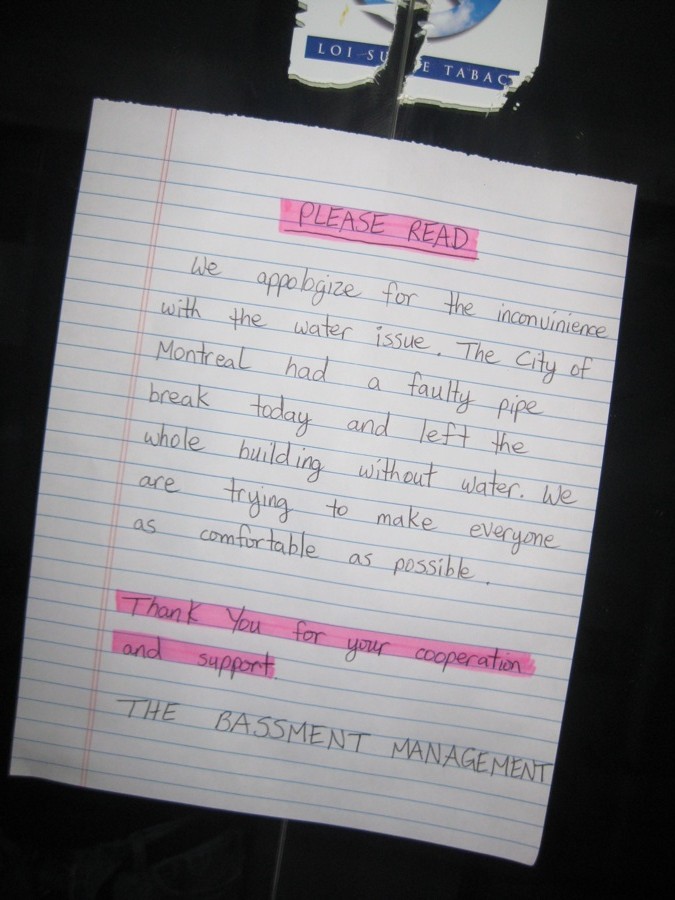 LOI SU E TABAC
PLEASE READ
We appologize for the inconvinience
with the water issue. The City of
Montreal had a faulty pipe
break today and left the
whole building without water. We
are trying to make everyone
as comfortable as possible.
Thank You for your cooperation
and support.
THE BASSMENT MANAGEMENT